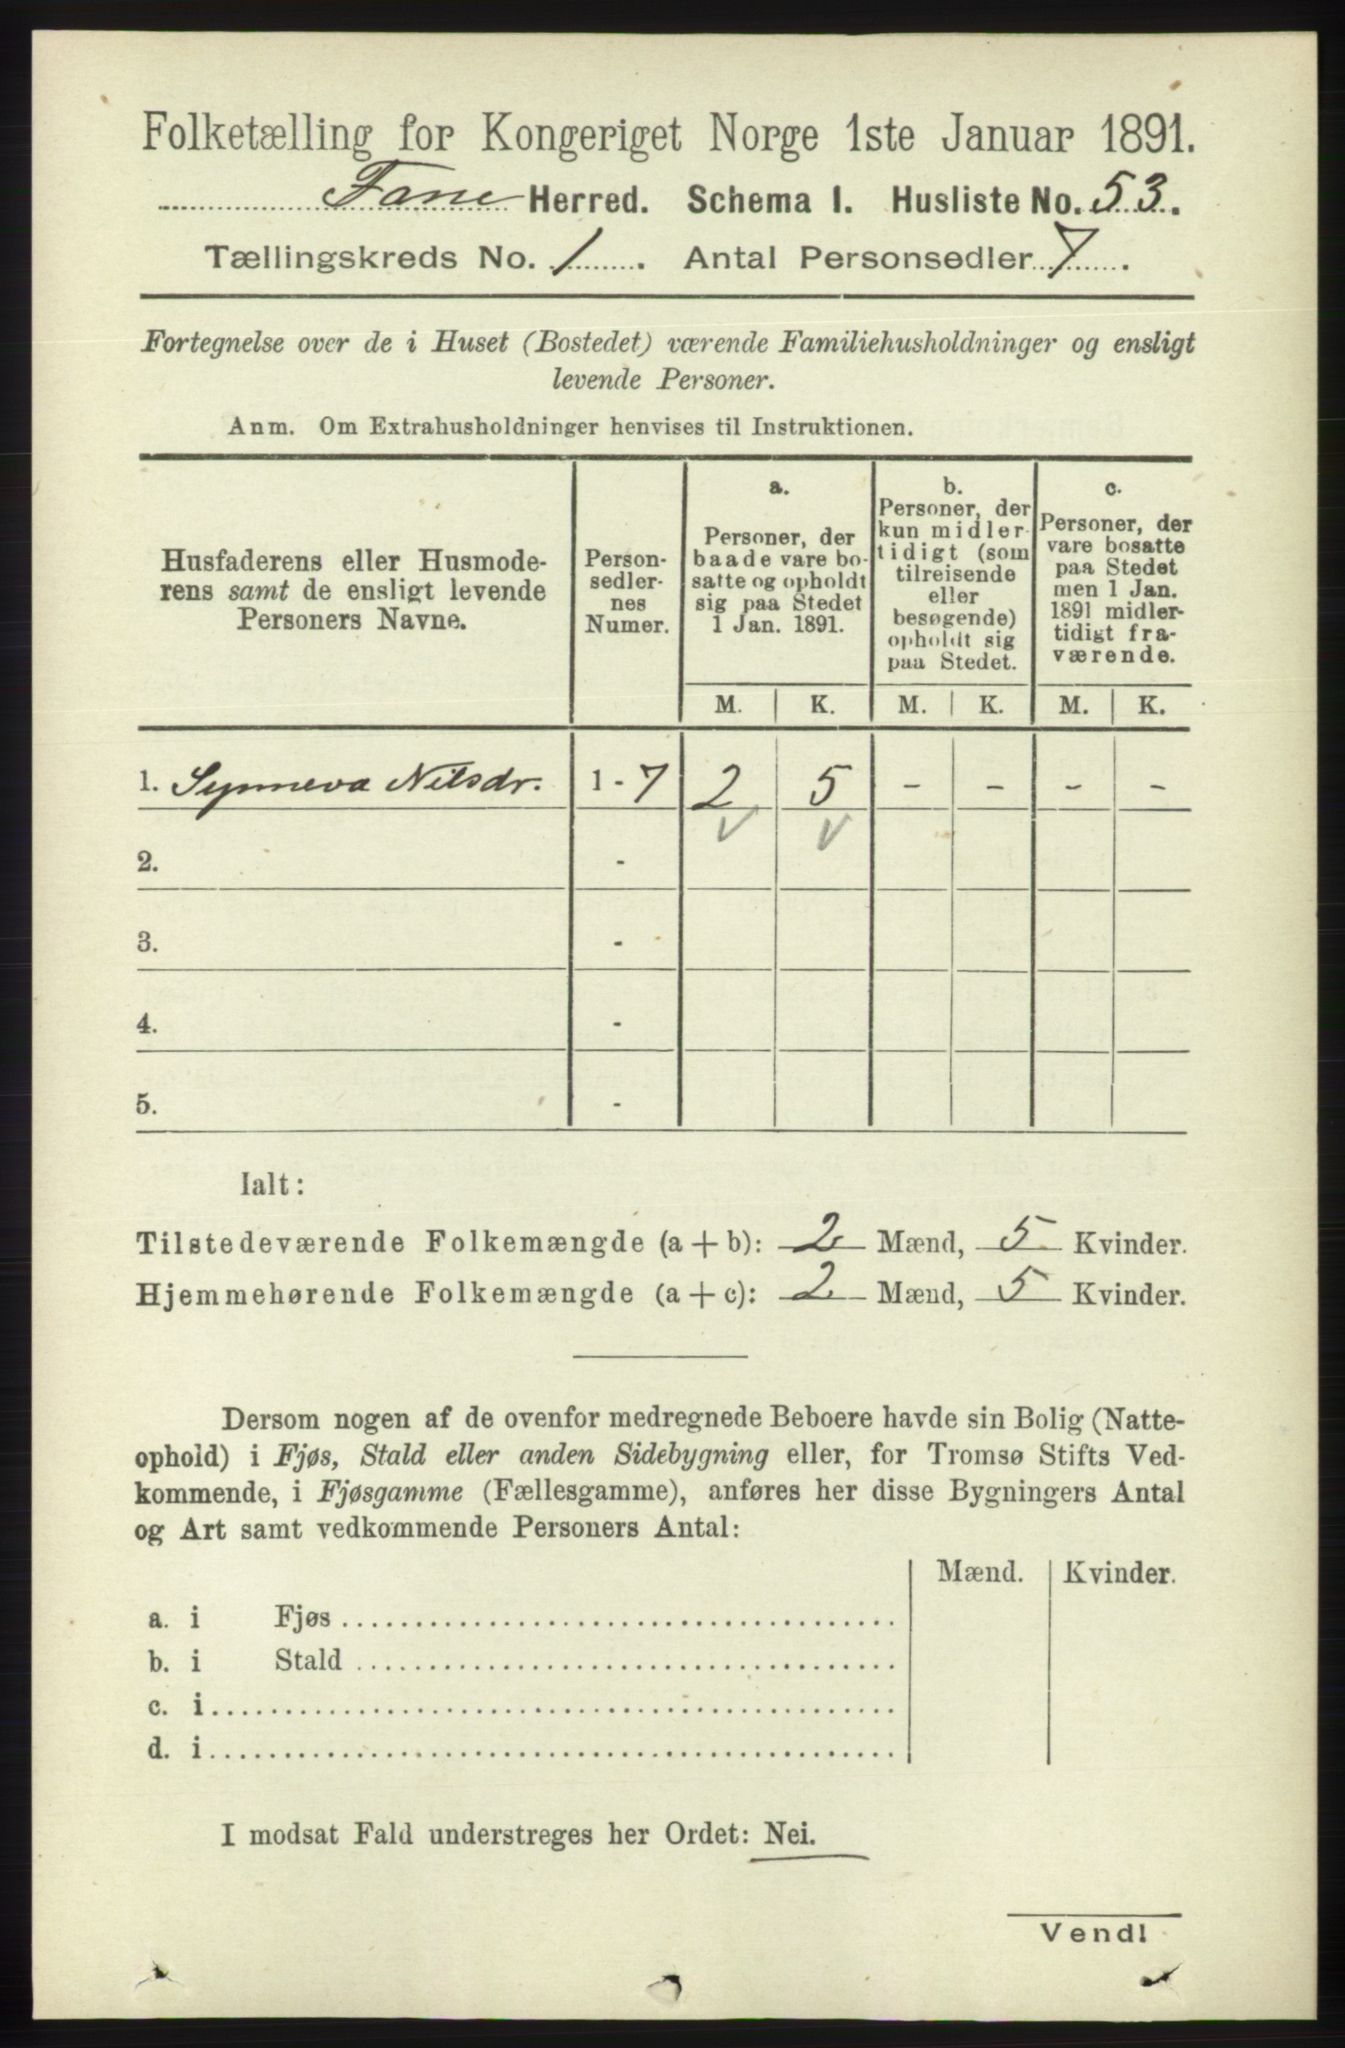 Folketælling for Kongeriget Norge 1ste Januar 1891.
Fane Herred. Schema I. Husliste No. 53.
Tællingskreds No. 1. Antal Personsedler 7.
Fortegnelse over de i Huset (Bostedet) værende Familiehusholdninger og ensligt
levende Personer.
Anm. Om Extrahusholdninger henvises til Instruktionen.
Husfaderens eller Husmode-
rens samt de ensligt levende
Personers Navne.
Person-
sedler-
nes
Numer.
a.
Personer, der
baade vare bo-
satte og opholdt
sig paa Stedet
1 Jan. 1891.
b.
Personer, der
kun midler-
tidigt (som
tilreisende
eller
besøgende)
opholdt sig
paa Stedet.
c.
Personer, der
vare bosatte
paa Stedet
men 1 Jan.
1891 midler-
tidigt fra-
værende.
M. K. M. K. M. K.
1. Synneva Nilsdr. 1 - 7 2 5 - - - -
2. -
3. -
4. -
5. -
Ialt:
Tilstedeværende Folkemængde (a + b): 2 Mænd, 5 Kvinder.
Hjemmehørende Folkemængde (a + c): 2 Mænd, 5 Kvinder.
Dersom nogen af de ovenfor medregnede Beboere havde sin Bolig (Natte-
ophold) i Fjøs, Stald eller anden Sidebygning eller, for Tromsø Stifts Ved-
kommende, i Fjøsgamme (Fællesgamme), anføres her disse Bygningers Antal
og Art samt vedkommende Personers Antal:
Mænd. Kvinder.
a. i Fjøs
b. i Stald
c. i
d. i
I modsat Fald understreges her Ordet: Nei.
Vend!